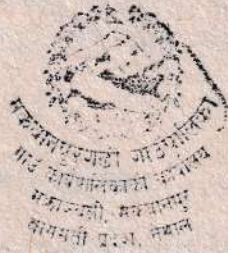 मकवानपुरगढी गाउँपालिका
गाउँ कार्यपालिकाको कार्यालय
मकवानपुर
बागमती प्रदेश, नेपाल